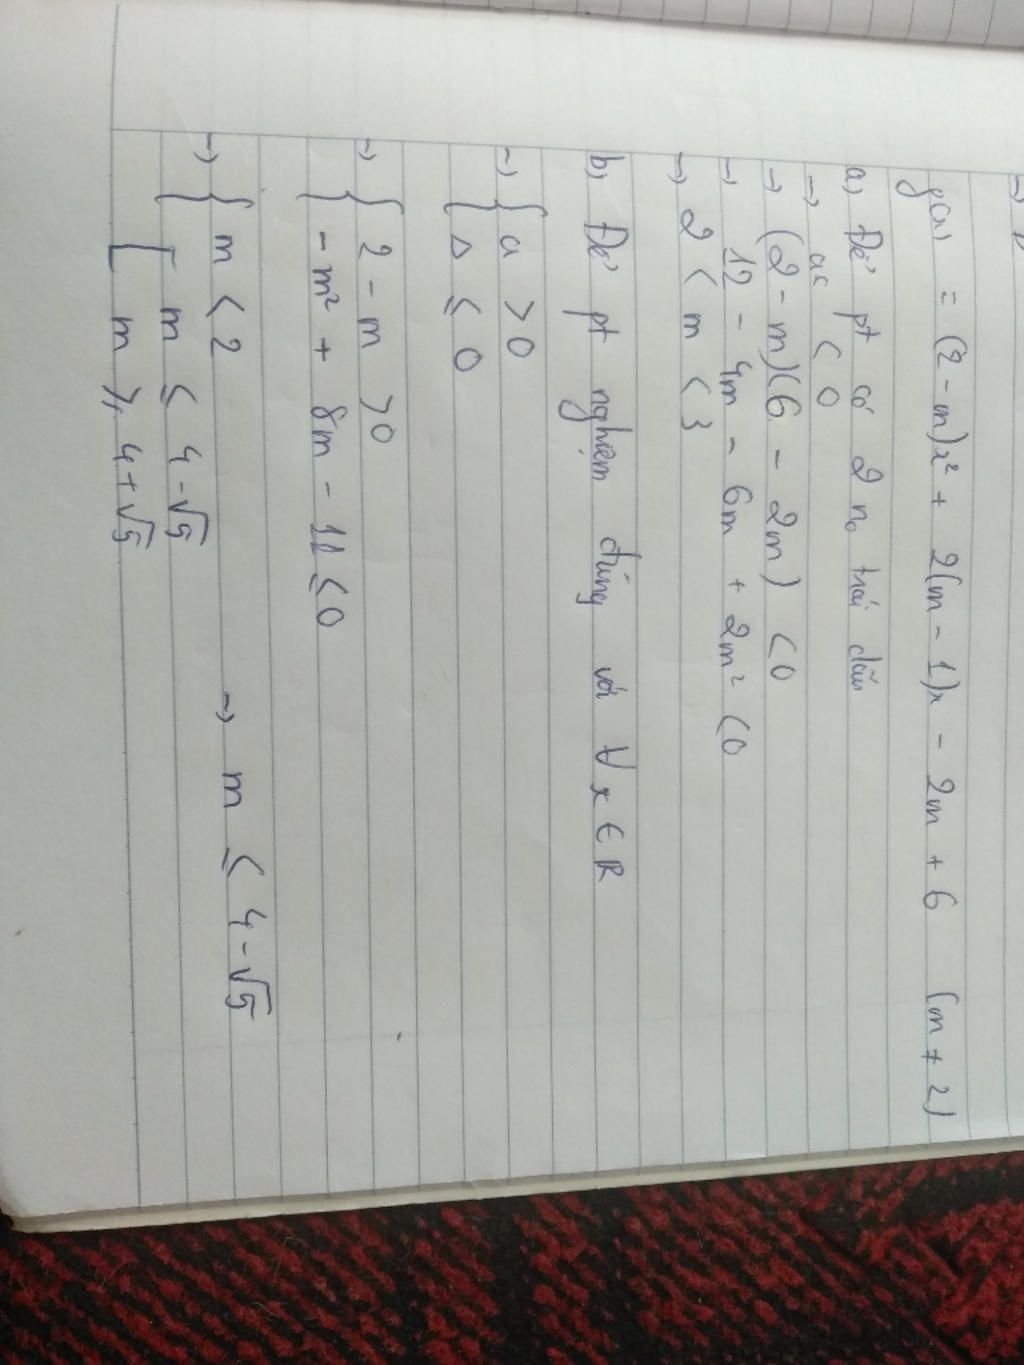 g(x) = (2 - m)x² + 2(m - 1)x - 2m + 6 (m ≠ 2)
a) Để pt có 2 n₀ trái dấu
→ ac < 0
→ (2 - m)(6 - 2m) < 0
→ 12 - 4m - 6m + 2m² < 0
→ 2 < m < 3
b) Để pt nghiệm đúng với ∀ x ∈ R
→ { a > 0
{ Δ ≤ 0
→ { 2 - m > 0
{ - m² + 8m - 11 ≤ 0
→ { m < 2 → m ≤ 4 - √5
{ [ m ≤ 4 - √5
[ m ≥ 4 + √5